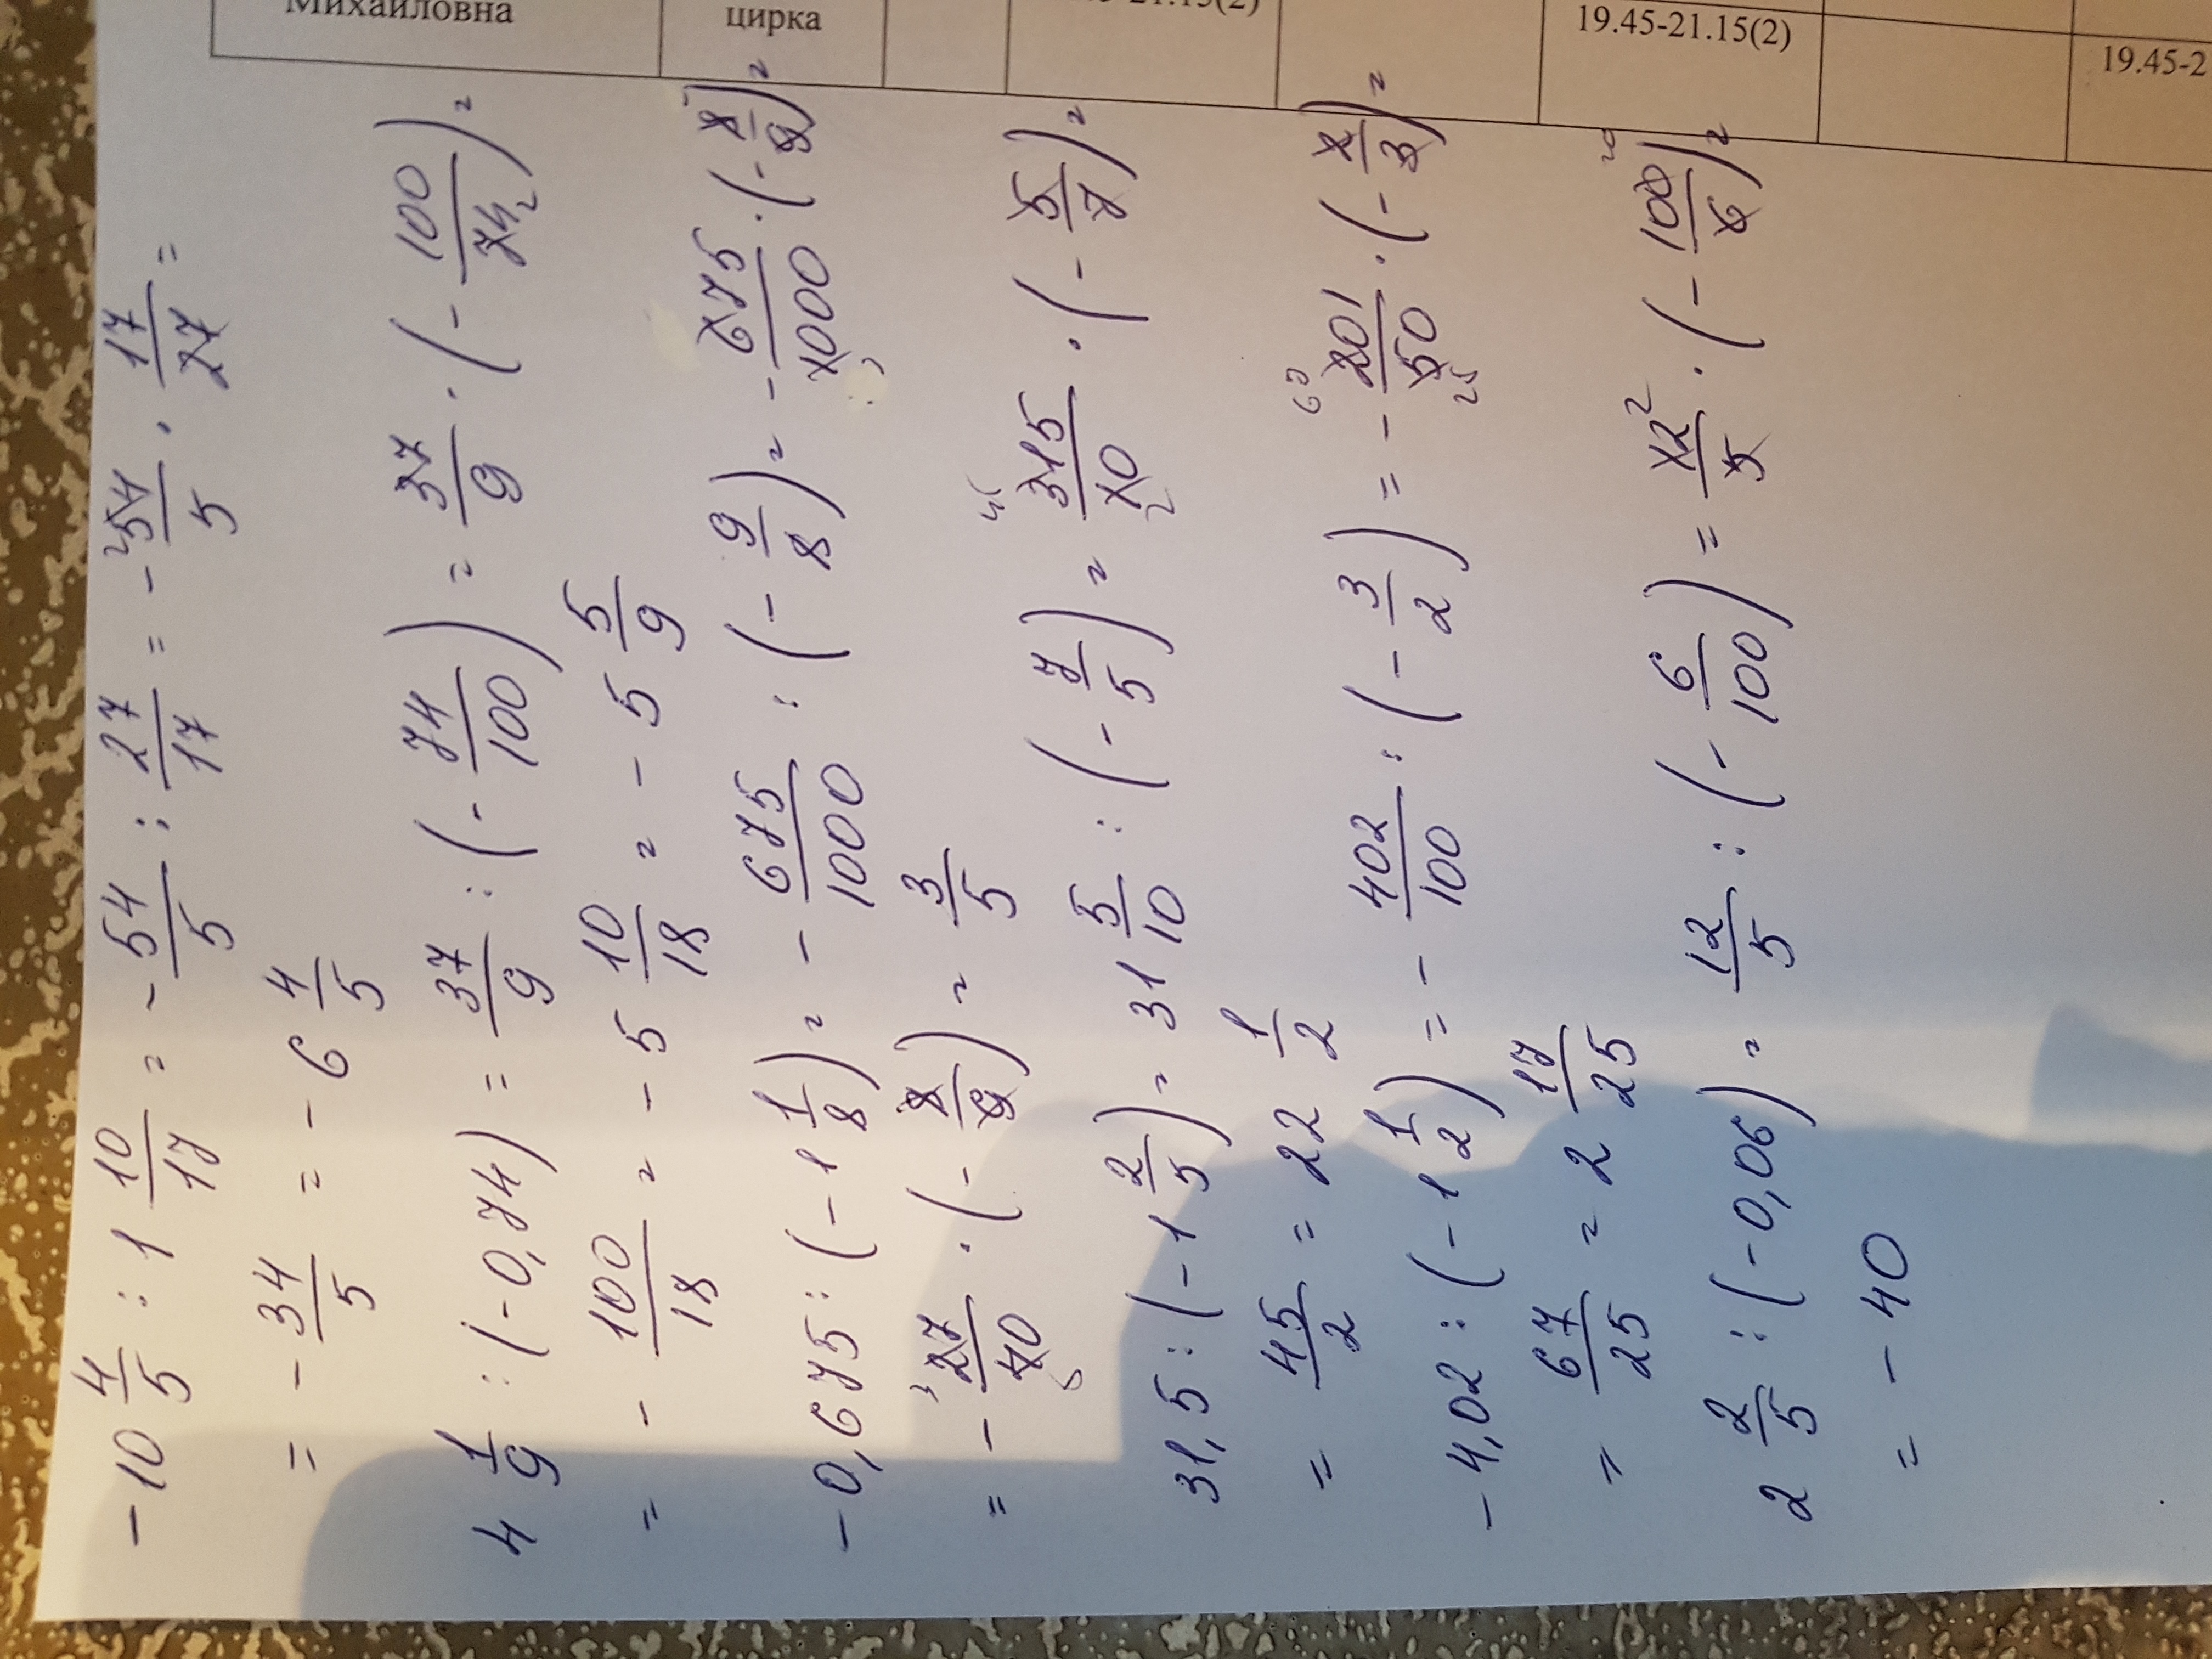 Михайловна цирка 19.45-21.15(2) 19.45-2
-10 4/5 : 1 10/17 = -54/5 : 27/17 = -54/5 · 17/27 =
= -34/5 = -6 4/5
4 1/9 : (-0,74) = 37/9 : (-74/100) = 37/9 · (-100/74) =
= -100/18 = -5 10/18 = -5 5/9
-0,675 : (-1 1/8) = -675/1000 : (-9/8) = -675/1000 · (-8/9) =
= -27/40 · (-8/9) = 3/5
31,5 : (-1 2/5) = 31 5/10 : (-7/5) = 315/10 · (-5/7) =
= 45/2 = 22 1/2
-4,02 : (-1 1/2) = -402/100 : (-3/2) = -201/50 · (-2/3) =
= 67/25 = 2 17/25
2 2/5 : (-0,06) = 12/5 : (-6/100) = 12/5 · (-100/6) =
= -40